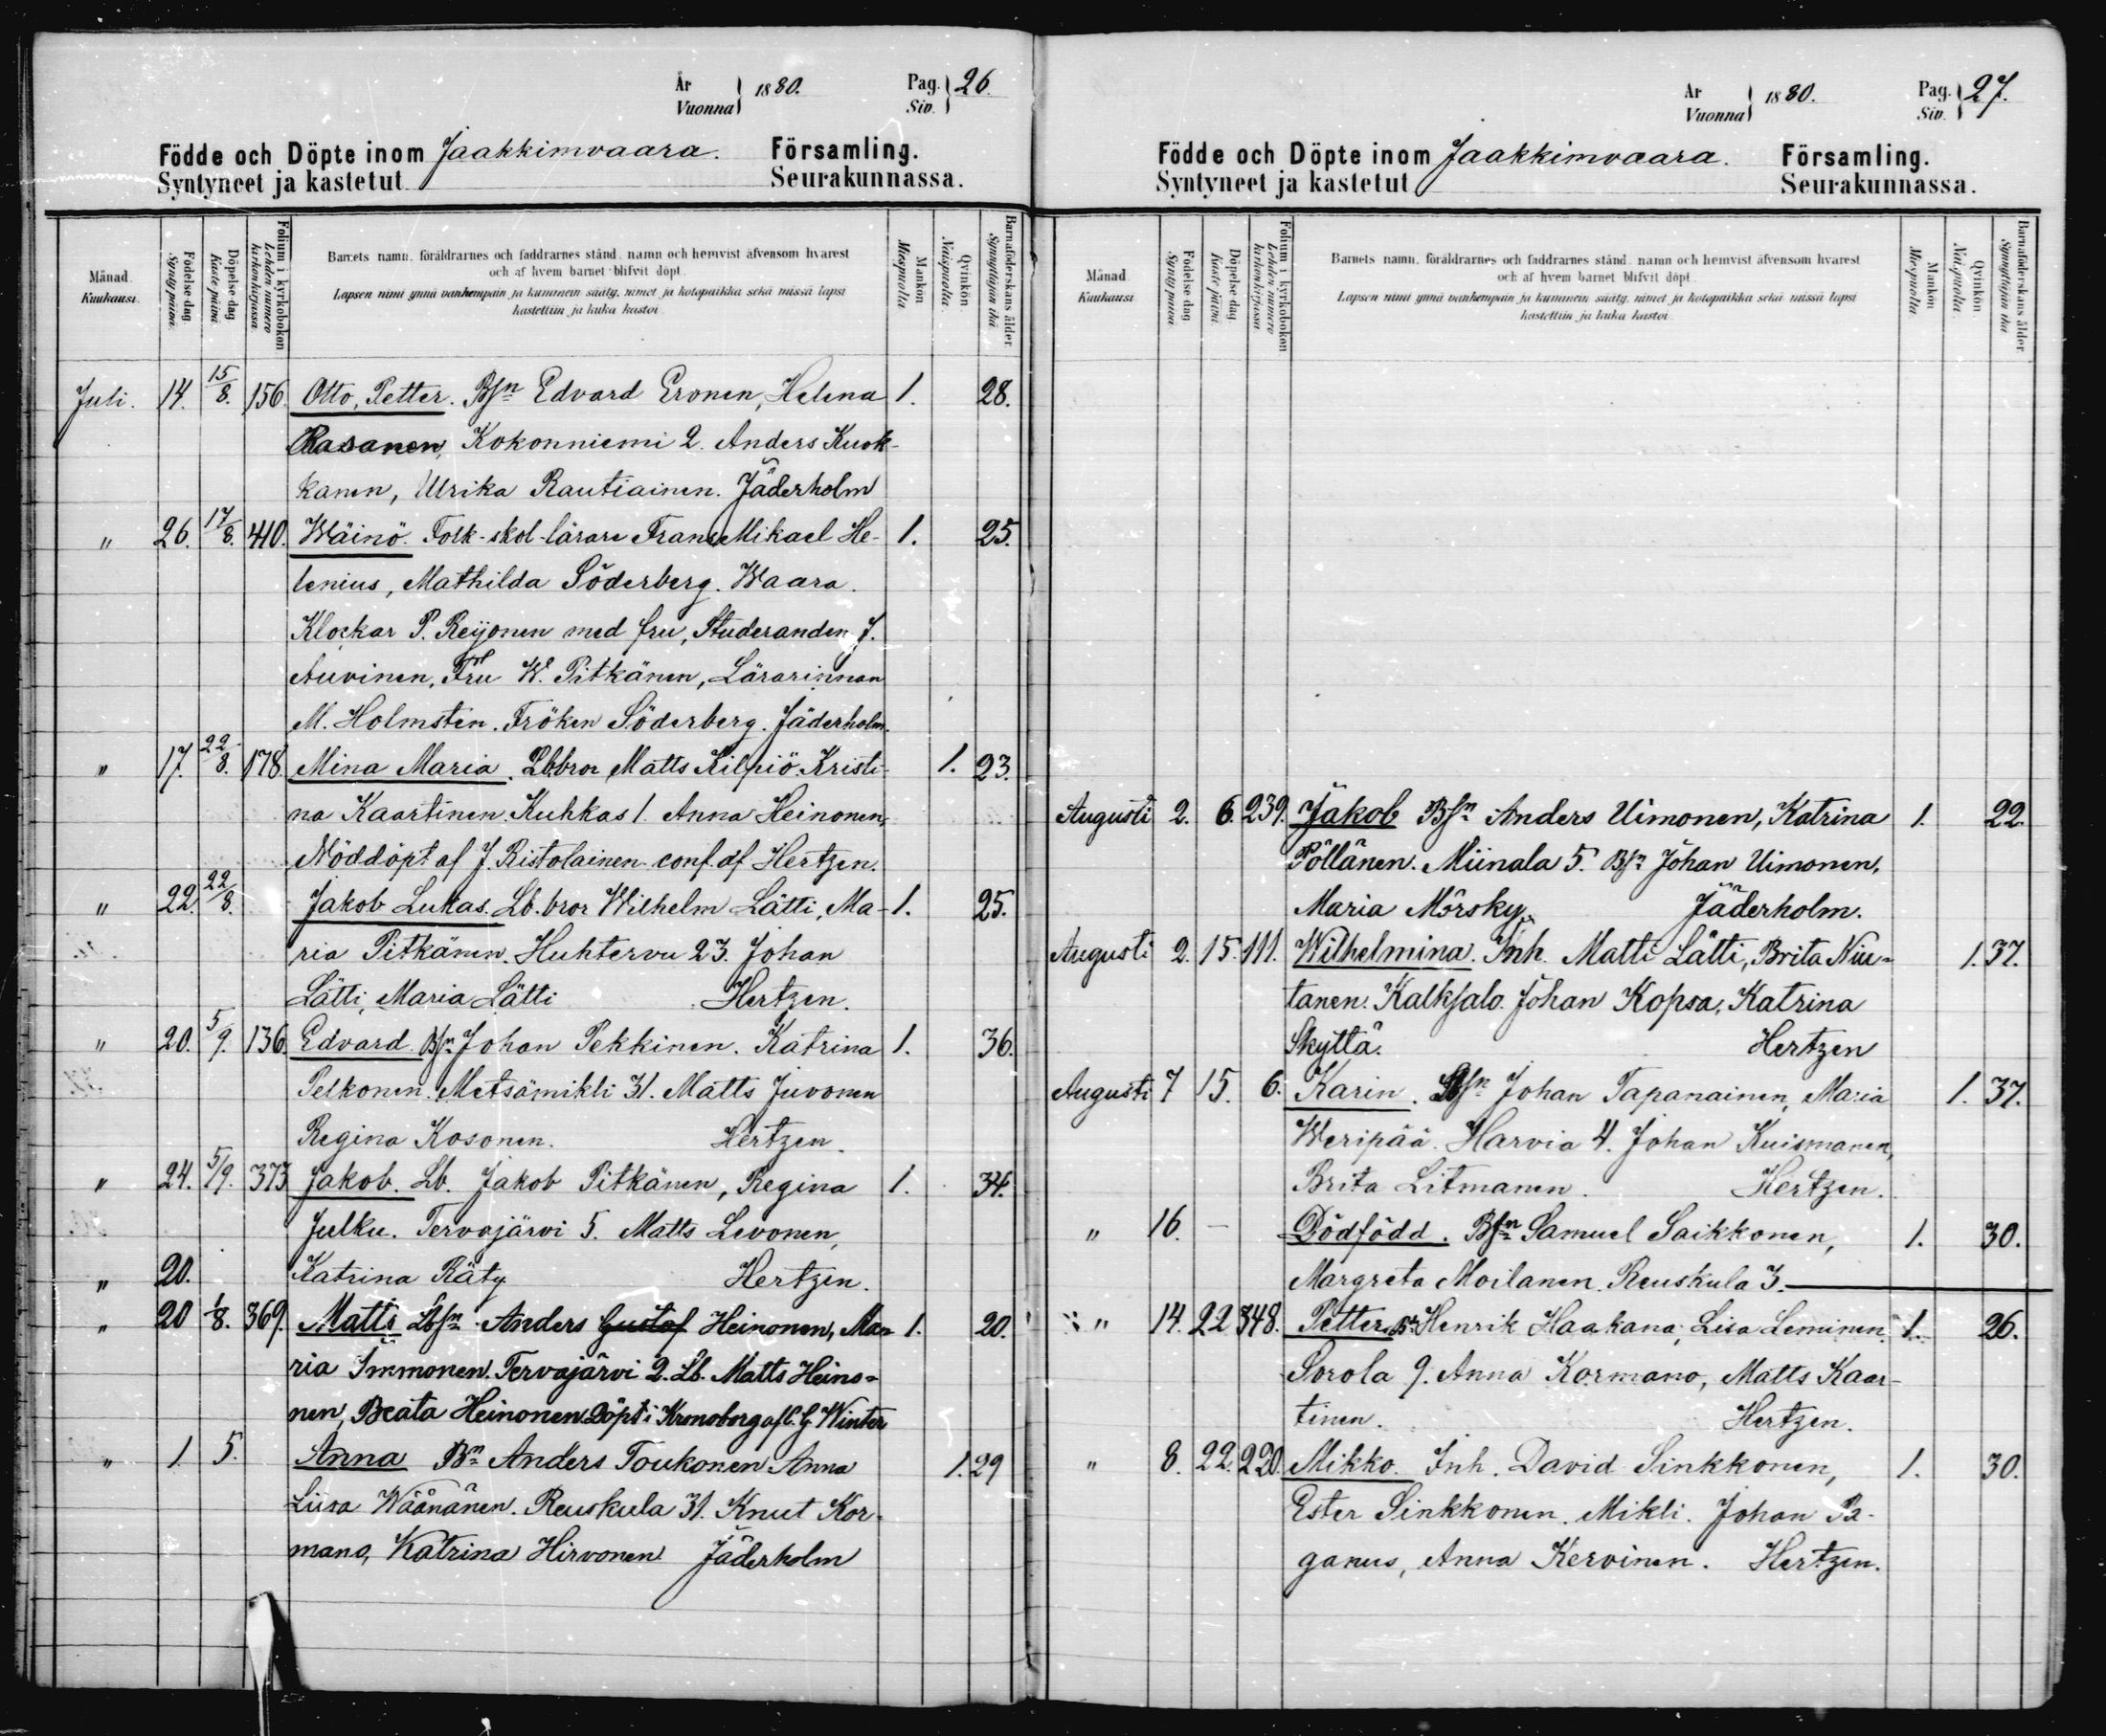 År Vuonna } 1880. Pag. Siv. } 26.
Födde och Döpte inom Jaakkimvaara. Församling.
Syntyneet ja kastetut Seurakunnassa.
Månad. Kuukausi.
Födelse dag. Synty päivä.
Döpelse dag. Kaste päivä.
Folium i kyrkoboken Lehden numero kirkonkirjassa.
Barnets namn, föräldrarnes och faddrarnes stånd, namn och hemvist äfvensom hvarest
och af hvem barnet blifvit döpt.
Lapsen nimi ynnä vanhempain ja kummein sääty, nimet ja kotopaikka sekä missä lapsi
kastettiin ja kuka kastoi.
Mankön Miespuolta.
Qvinkön. Naispuolta.
Barnaföderskans ålder Synnyttäjän ikä
Juli. 14. 15/8. 156. Otto, Petter. Bsn Edvard Eronen, Helena 1. 28.
Rasanen, Kokonniemi 2. Anders Kuok-
kanen, Ulrika Rautiainen. Jäderholm
" 26. 17/8. 410. Wäinö. Folk-skol-lärare Frans Mikael He- 1. 25.
lenius, Mathilda Söderberg. Waara.
Klockar P. Reijonen med fru, Studeranden J.
Auvinen, Fru W. Pitkänen, Lärarinnan
M. Holmsten. Fröken Söderberg. Jäderholm.
" 17. 22/8. 178. Mina Maria. Lb.bror Matts Kilpiö. Kristi- 1. 23.
na Kaartinen. Kuhkas 1. Anna Heinonen,
Nöddöpt af J. Ristolainen conf. af Hertzen.
" 22. 22/8. Jakob Lukas. Lb. bror Wilhelm Lätti, Ma- 1. 25.
ria Pitkänen. Huhtervu 23. Johan
Lätti, Maria Lätti Hertzen.
" 20. 5/9. 136. Edvard. Bsn Johan Pekkinen. Katrina 1. 36.
Pelkonen. Metsämikli 31. Matts Juvonen
Regina Kosonen. Hertzen.
" 24. 5/9. 373 Jakob. Lb. Jakob Pitkänen, Regina 1. 34.
Julku. Tervajärvi 5. Matts Levonen,
" 20. Katrina Räty Hertzen.
" 20 1/8. 369. Matts Lbsn Anders Gustaf Heinonen, Ma- 1. 20.
ria Immonen. Tervajärvi 2. Lb. Matts Heino-
nen, Beata Heinonen Döpt i Kronoborg af C. G. Winter
" 1 5. Anna Bn Anders Toukonen Anna 1. 29
Liisa Wäänänen. Reuskula 31. Knut Kor-
mano, Katrina Hirvonen Jäderholm
År Vuonna } 1880. Pag. Siv. } 27.
Födde och Döpte inom Jaakkimvaara. Församling.
Syntyneet ja kastetut Seurakunnassa.
Månad. Kuukausi
Födelse dag Synty päivä
Döpelse dag Kaste päivä.
Folium i kyrkoboken Lehden numero kirkonkirjassa
Barnets namn, föräldrarnes och faddrarnes stånd, namn och hemvist äfvensom hvarest
och af hvem barnet blifvit döpt.
Lapsen nimi ynnä vanhempain ja kummein sääty, nimet ja kotopaikka sekä missä lapsi
kastettiin ja kuka kastoi.
Mankön Miespuolta.
Qvinkön Naispuolta.
Barnaföderskans ålder Synnyttäjän ikä
Augusti 2. 6. 239. Jakob Bsn Anders Uimonen, Katrina 1. 22.
Pöllänen. Miinala 5. Bsn Johan Uimonen,
Maria Mörsky. Jäderholm.
Augusti 2. 15. 111. Wilhelmina. Inh. Matti Lätti, Brita Niu- 1. 37.
tanen. Kalksalo. Johan Kopsa, Katrina
Skyttä. Hertzen
Augusti 7 15. 6. Karin. Bsn Johan Tapanainen, Maria 1. 37.
Weripää. Harvia 4. Johan Kuismanen,
Brita Litmanen. Hertzen.
" 16. — Dödfödd. Bsn Samuel Saikkonen, 1. 30.
Margreta Moilanen. Reuskula 3.
" 14. 22 348. Petter. Bn Henrik Haakana, Lisa Leminen. 1. 26.
Sorola 9. Anna Kormano, Matts Kaar-
tinen. Hertzen.
" 8. 22. 220. Mikko. Inh. David Sinkkonen, 1. 30.
Ester Sinkkonen. Mikli. Johan Pa-
ganus, Anna Kervinen. Hertzen.